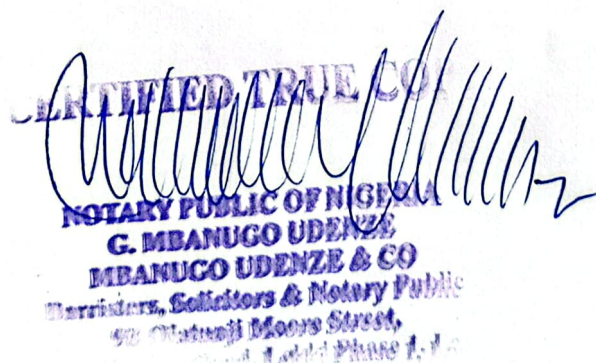 CERTIFIED TRUE CO
NOTARY PUBLIC OF NIGERIA
G. MBANUGO UDENZE
MBANUGO UDENZE & CO
Barristers, Solicitors & Notary Public
Moore Street,
Phase 1,